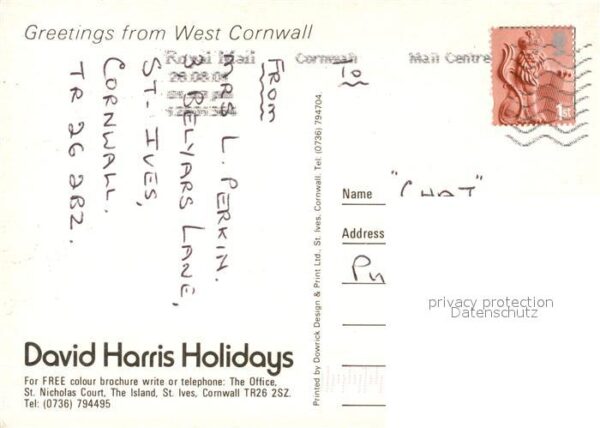 Greetings from West Cornwall
Royal Mail Cornwall Mail Centre
FROM
MRS L. PERKIN.
3 BELYARS LANE,
ST. IVES,
CORNWALL.
TR 26 2BZ.
David Harris Holidays
For FREE colour brochure write or telephone: The Office,
St. Nicholas Court, The Island, St. Ives, Cornwall TR26 2SZ.
Tel: (0736) 794495
Printed by Dowrick Design & Print Ltd., St. Ives, Cornwall. Tel: (0736) 794704.
To
Name "CHAT"
Address
1st
privacy protection
Datenschutz